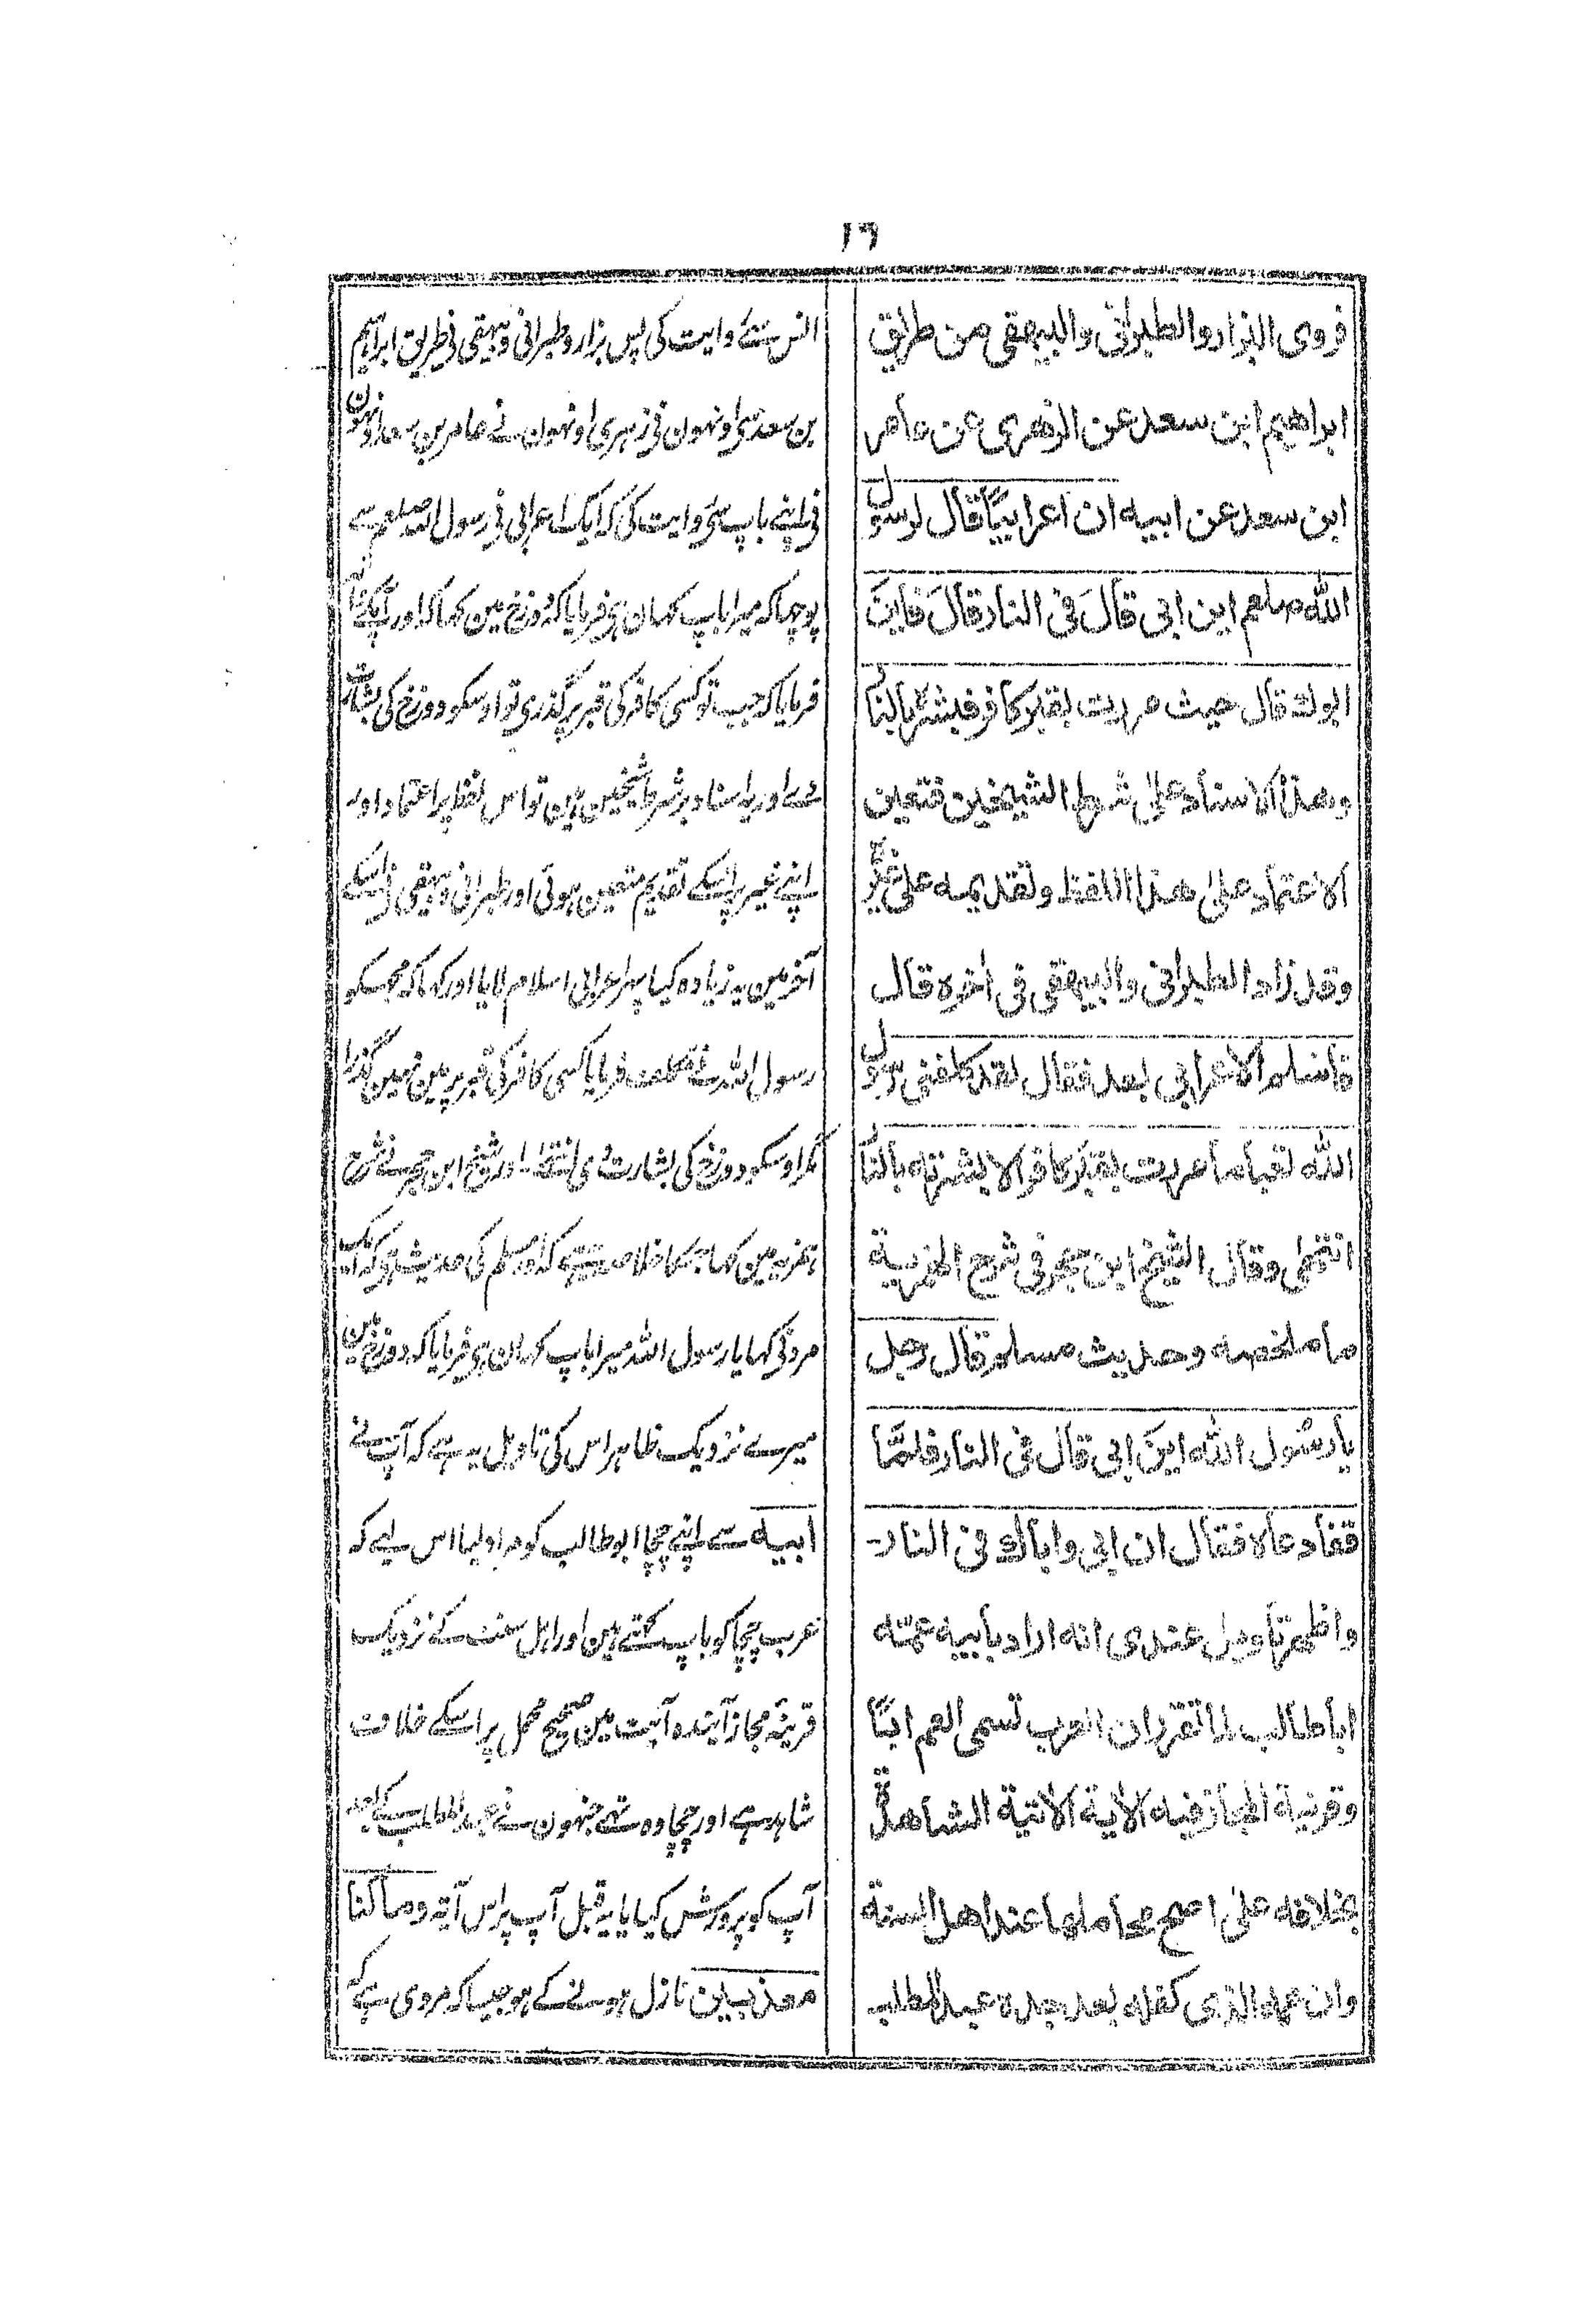 ١٦
فروى البزار والطبرانى والبيهقى من طريق
ابراهيم ابن سعد عن الزهرى عن عامر
ابن سعد عن ابيه ان اعرابيًا قال لرسول
الله صلعم اين ابى قالَ فى النار قالَ فاينَ
ابوك قال حيث مررت بقبر كافر فبشره بالنار
وهذا الاسناد على شرط الشيخين فتعين
الاعتماد على هذا اللفظ وتقديمه على غيره
وقد زاد الطبرانى والبيهقى فى اخره قال
فاسلم الاعرابى بعد فقال لقد كلفنى رسول
الله تعبا ما مررت بقبر كافر الا بشرته بالنار
انتهى وقال الشيخ ابن حجر فى شرح الهمزية
ما ملخصه وحديث مسلم قال رجل
يا رسُول الله اينَ ابى قال فى النار فلمَّا
قفا دعاه فقال ان ابى واباك فى النار-
واظهر تاويل عندى انه اراد بابيه عمّه
ابا طالب لما تقرر ان العرب تسمى العم ابًا
وقرينة المجاز فيه الاية الاتية الشاهدة
بخلافه على اصح محاملها عند اهل السنة
وان عمه الذى كفله بعد جده عبد المطلب
انس سے روایت کی پس بزار و طبرانی و بیہقی نی طریق ابراہیم
بن سعد سی اونہون نی زہری اونہون نے عامر بن سعد اونہون
نی اپنے باپ سی روایت کی کہ ایک اعرابی نی رسول اللہ صلعم سے
پوچھا کہ میرا باپ کہان ہی فرمایا کہ دوزخ مین کہا کہ اور آپکے
فرمایا کہ جب تو کسی کافر کی قبر پر گذری تو اوسکو دوزخ کی بشارت
دے اور یہ اسناد بر شرط شیخین ہین تو اس لفظ پر اعتماد اور
اپنے غیر پر اسکے تقدیم متعین ہوئی اور طبرانی و بیہقی نی اسکے
آخر مین یہ زیادہ کیا پہر اعرابی اسلام لایا اور کہا کہ مجسکو
رسول اللہ نے تکلیف فرمایا کسی کافر کی قبر پر مین نہین گذرا
مگر اوسکو دوزخ کی بشارت دی انتہے اور شیخ ابن حجر نے شرح
ہمزیہ مین کہا جسکا خلاصہ یہ ہے کہ اور مسلم کی حدیث ہی کہ ایک
مرد نی کہا یا رسول اللہ میرا باپ کہان ہی فرمایا کہ دوزخ مین
میرے نزدیک ظاہر اس کی تاویل یہ ہے کہ آپ نے
ابیہ سے اپنے چچا ابو طالب کو مراد لیا اس لیے کہ
عرب چچا کو باپ کہتے ہین اور اہل سنت کے نزدیک
قرینہ مجاز آیندہ آیت مین صحیح محمل پر اسکے خلاف
شاہد ہے اور چچا وہ تہے جنہون نے عبد المطلب کے بعد
آپ کو پرورش کیا یا یہ قبل آپ پر اس آیتہ وما كنا
معذبين نازل ہونے کے ہو جیسا کہ مروی ہے کہ